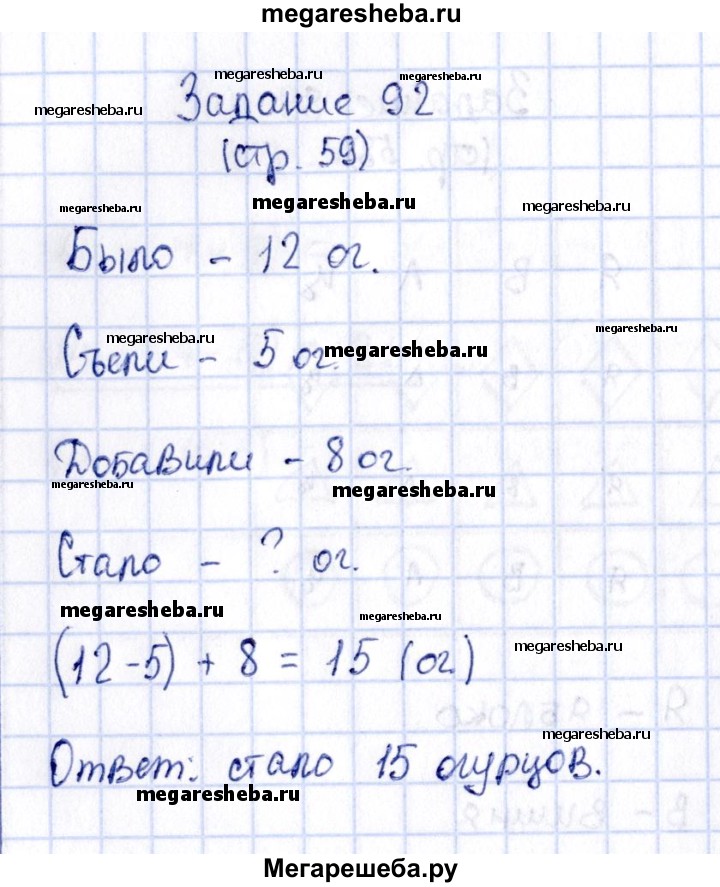 megaresheba.ru
megaresheba.ru megaresheba.ru
megaresheba.ru
Задание 92
(стр. 59)
megaresheba.ru megaresheba.ru megaresheba.ru
Было - 12 ог.
megaresheba.ru megaresheba.ru
Съели - 5 ог. megaresheba.ru
Добавили - 8 ог.
megaresheba.ru megaresheba.ru
Стало - ? ог.
megaresheba.ru megaresheba.ru
(12-5) + 8 = 15 (ог.) megaresheba.ru
megaresheba.ru
Ответ: стало 15 огурцов.
megaresheba.ru
Мегарешеба.ру